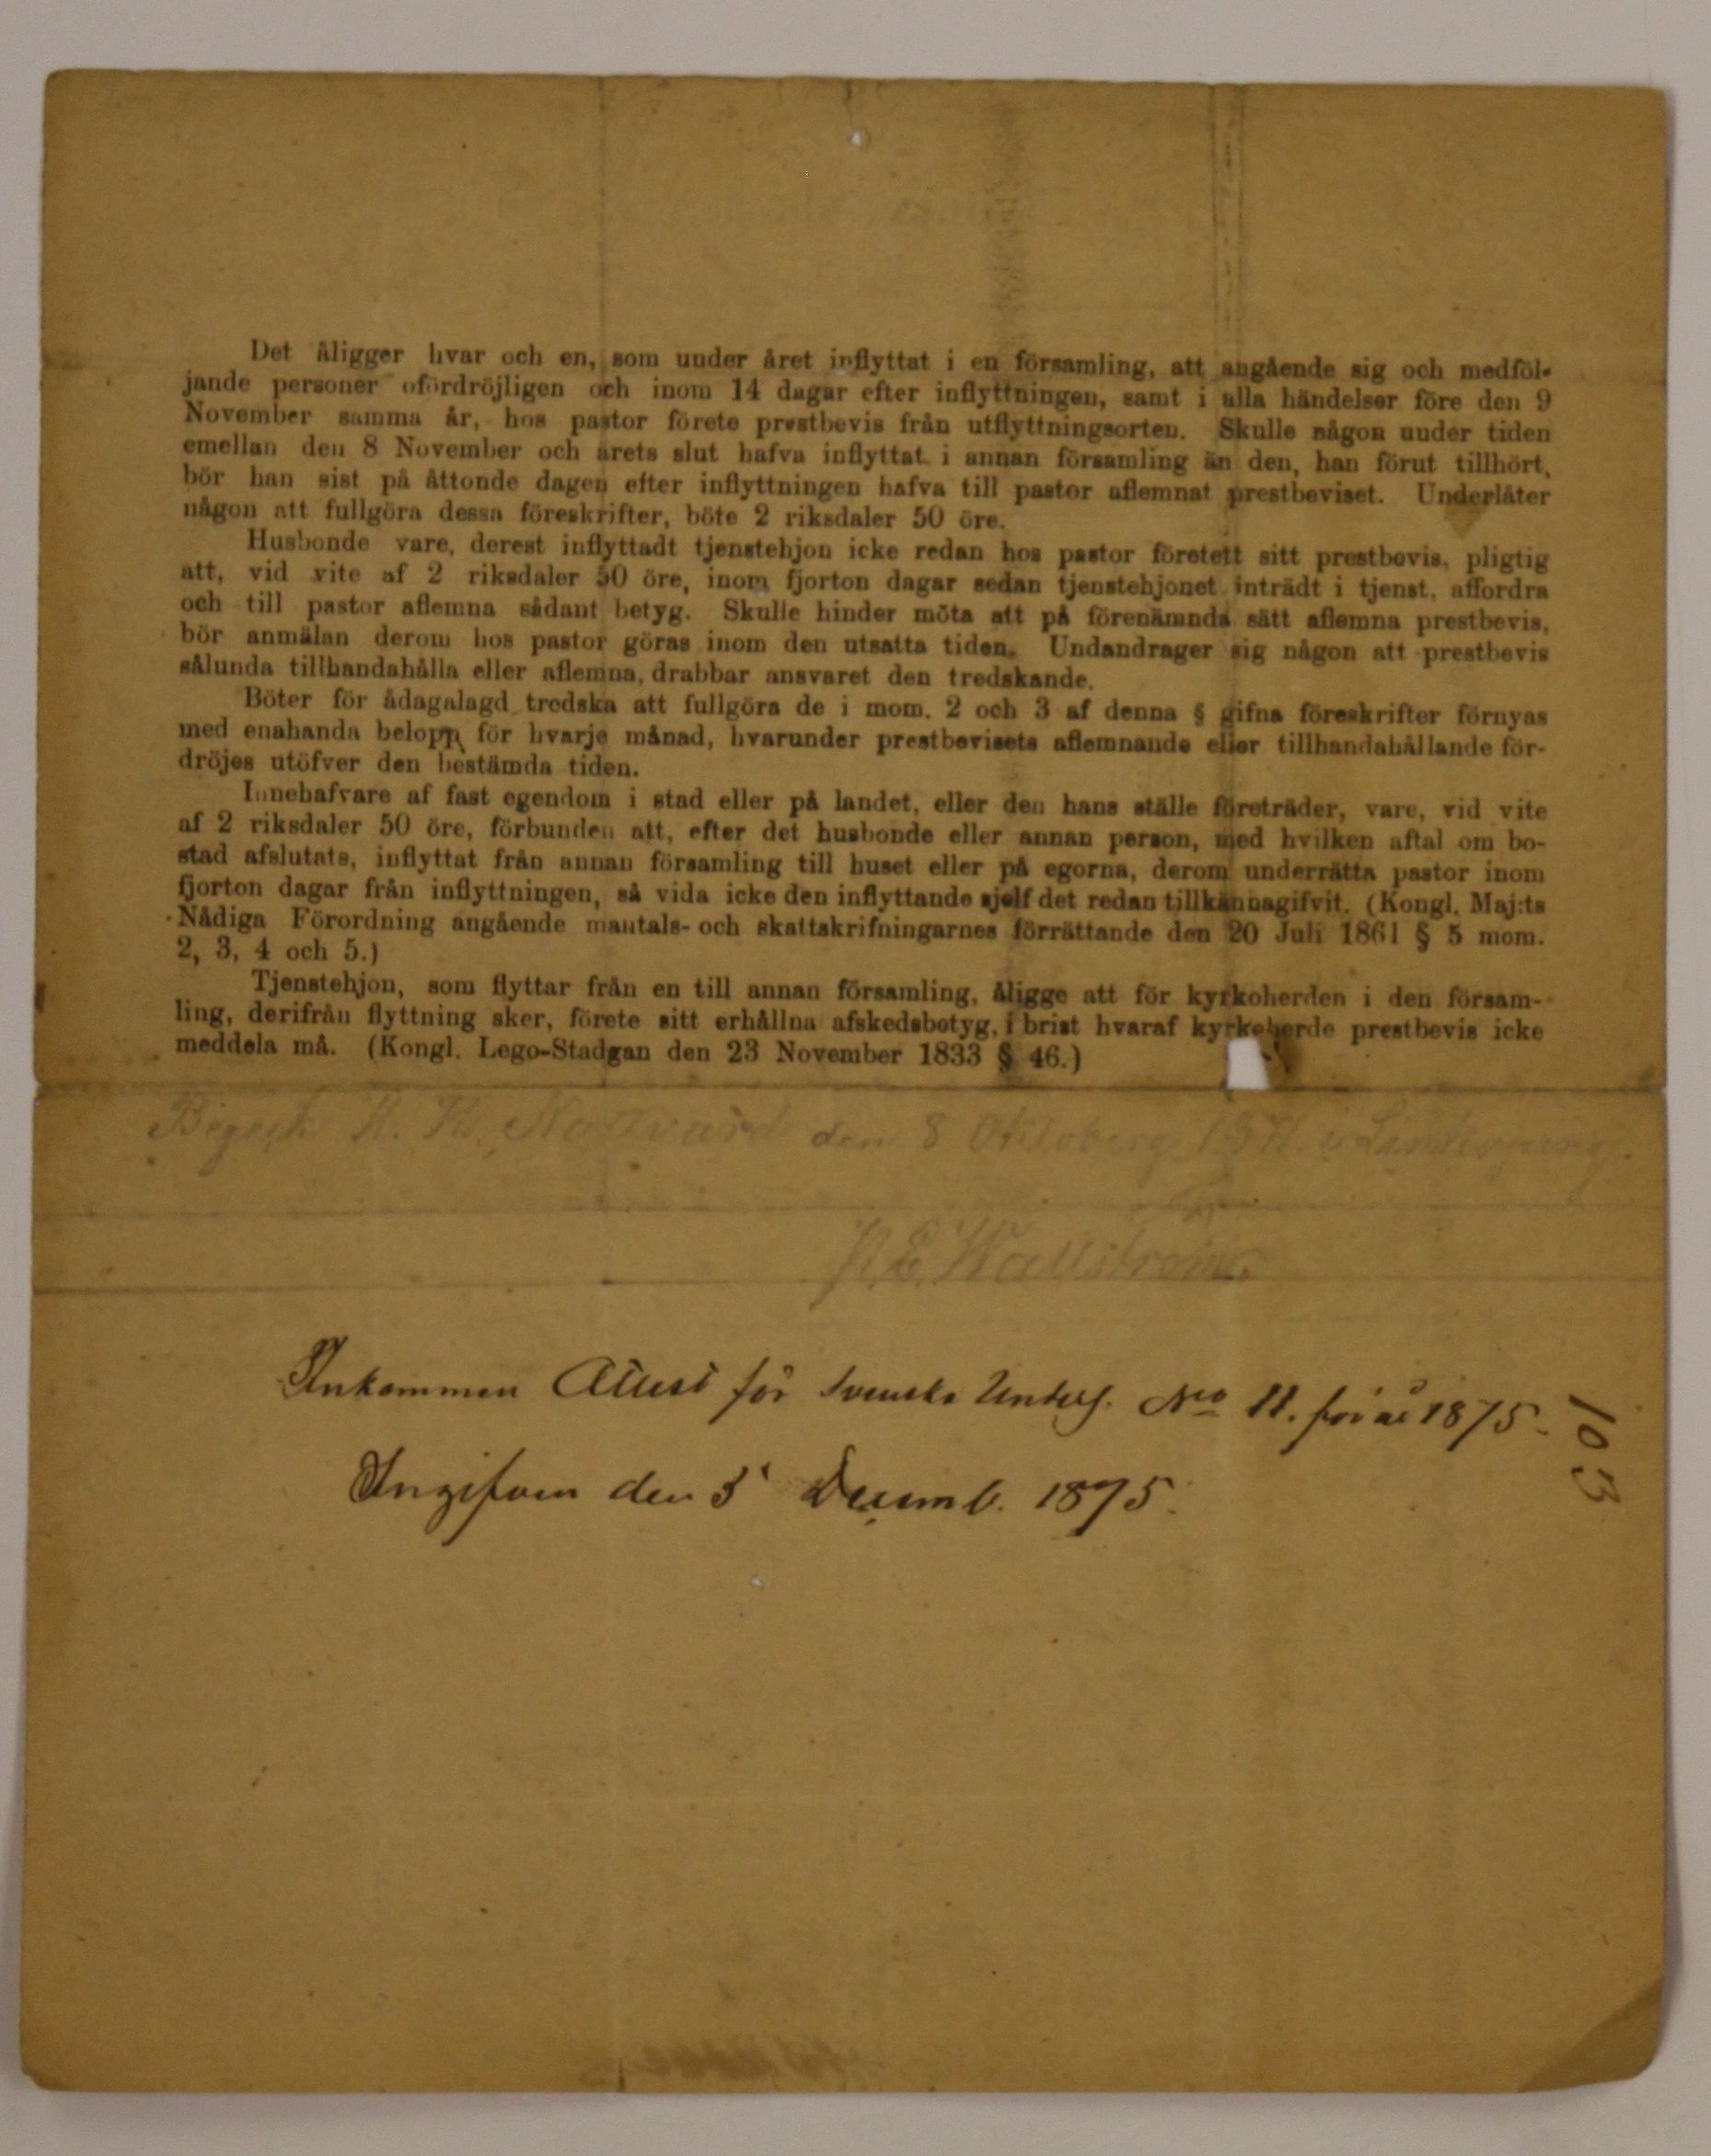 Det åligger hvar och en, som under året inflyttat i en församling, att angående sig och medföl-
jande personer ofördröjligen och inom 14 dagar efter inflyttningen, samt i alla händelser före den 9
November samma år, hos pastor förete prestbevis från utflyttningsorten. Skulle någon under tiden
emellan den 8 November och årets slut hafva inflyttat i annan församling än den, han förut tillhört,
bör han sist på åttonde dagen efter inflyttningen hafva till pastor aflemnat prestbeviset. Underlåter
någon att fullgöra dessa föreskrifter, böte 2 riksdaler 50 öre.
Husbonde vare, derest inflyttadt tjenstehjon icke redan hos pastor företett sitt prestbevis, pligtig
att, vid vite af 2 riksdaler 50 öre, inom fjorton dagar sedan tjenstehjonet inträdt i tjenst, affordra
och till pastor aflemna sådant betyg. Skulle hinder möta att på förenämnda sätt aflemna prestbevis,
bör anmälan derom hos pastor göras inom den utsatta tiden. Undandrager sig någon att prestbevis
sålunda tillhandahålla eller aflemna, drabbar ansvaret den tredskande.
Böter för ådagalagd tredska att fullgöra de i mom. 2 och 3 af denna § gifna föreskrifter förnyas
med enahanda belopp för hvarje månad, hvarunder prestbevisets aflemnande eller tillhandahållande för-
dröjes utöfver den bestämda tiden.
Innehafvare af fast egendom i stad eller på landet, eller den hans ställe företräder, vare, vid vite
af 2 riksdaler 50 öre, förbunden att, efter det husbonde eller annan person, med hvilken aftal om bo-
stad afslutats, inflyttat från annan församling till huset eller på egorna, derom underrätta pastor inom
fjorton dagar från inflyttningen, så vida icke den inflyttande sjelf det redan tillkännagifvit. (Kongl. Maj:ts
Nådiga Förordning angående mantals- och skattskrifningarnes förrättande den 20 Juli 1861 § 5 mom.
2, 3, 4 och 5.)
Tjenstehjon, som flyttar från en till annan församling, åligge att för kyrkoherden i den försam-
ling, derifrån flyttning sker, förete sitt erhållna afskedsbetyg, i brist hvaraf kyrkoherde prestbevis icke
meddela må. (Kongl. Lego-Stadgan den 23 November 1833 § 46.)
Begick H. H. Nattvard den 8 Oktober i Linköping.
Wallström
Inkommen Attest för Svenska Unders. No 11. för år 1875.
Ingifven den 3 Decemb. 1875.
103